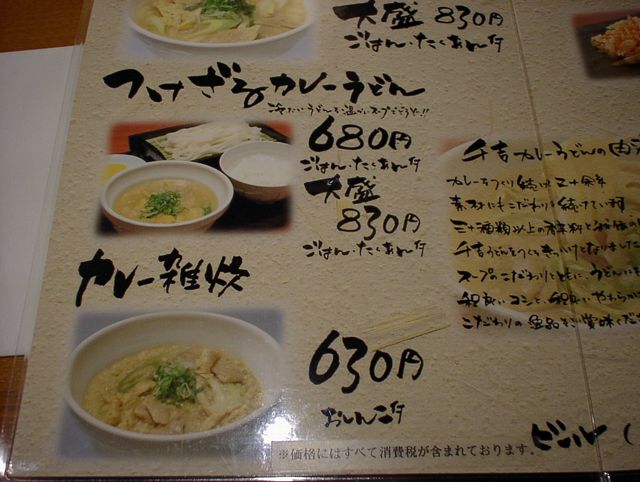 大盛 830円
ごはん・たくあん付
つけざるカレーうどん
冷たいうどんを温かいスープでどうぞ!!
680円
ごはん・たくあん付
大盛
830円
ごはん・たくあん付
カレー雑炊
630円
おしんこ付
※価格にはすべて消費税が含まれております。
千吉カレーうどんの
カレーをつくり続けて三十余年
素材にもこだわりを続けています
三十種類以上の香辛料と
千吉うどんをつくるきっかけとなりました
スープのこだわりとともに、うどんに
程良いコシと、程良いやわらか
こだわりの逸品をご賞味くだ
ビール（